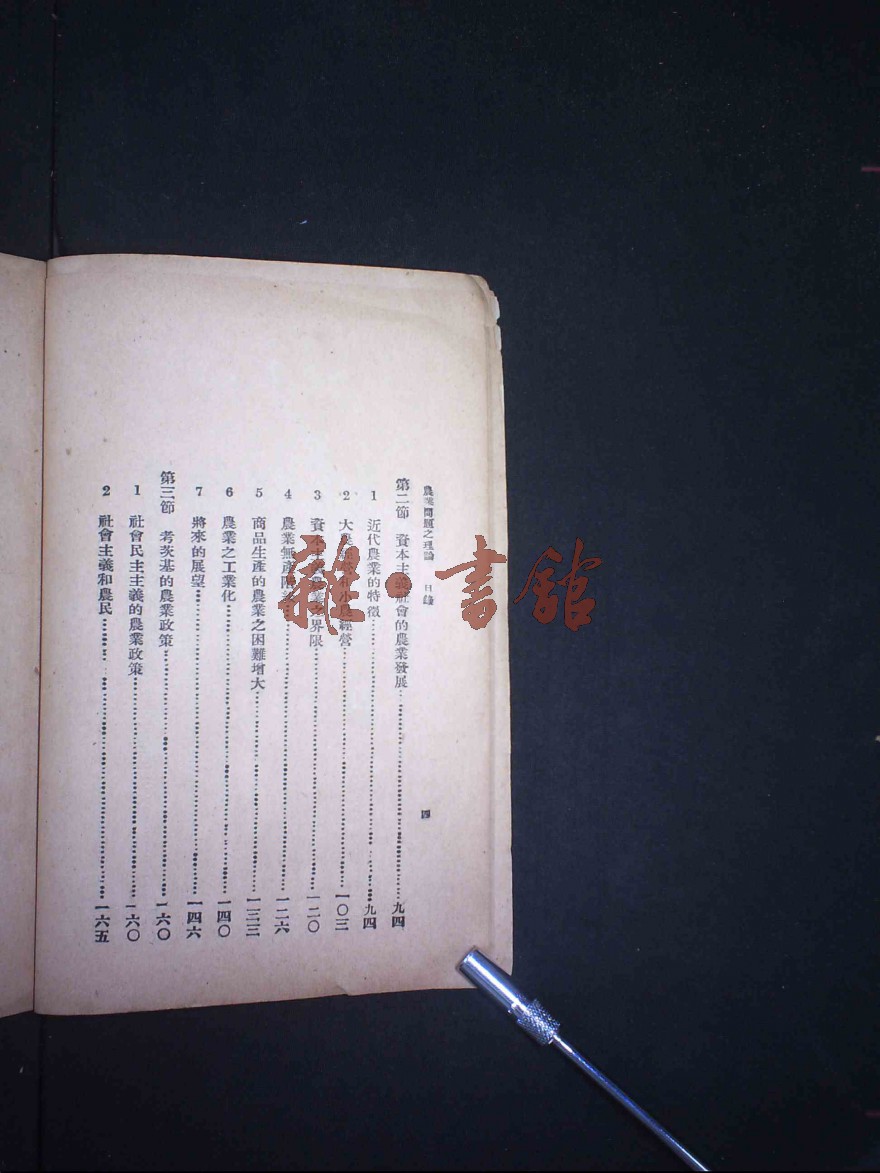 農業問題之理論 目錄 四
第二節 資本主義社會的農業發展 九四
1 近代農業的特徵 九四
2 大農經營和小農經營 一〇三
3 資本主義農業之界限 一二〇
4 農業無產階 一二六
5 商品生產的農業之困難增大 一三三
6 農業之工業化 一四〇
7 將來的展望 一四六
第三節 考茨基的農業政策 一六〇
1 社會民主主義的農業政策 一六〇
2 社會主義和農民 一六五
雜·書館